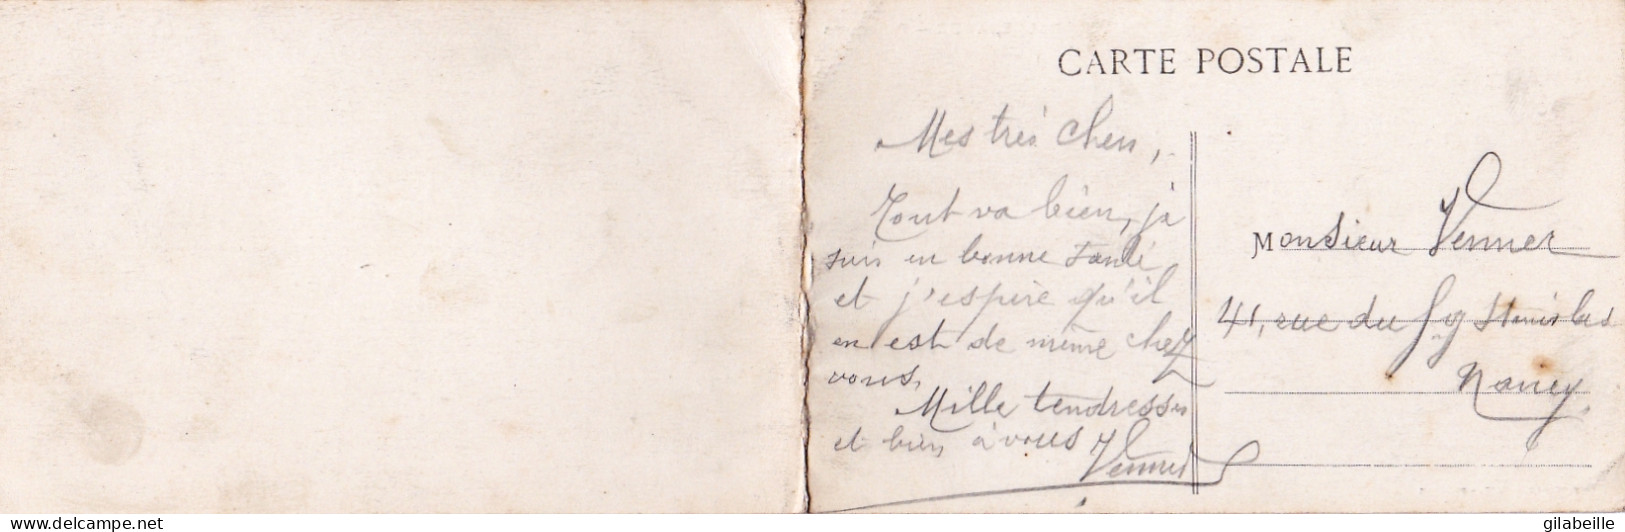 CARTE POSTALE
Mes très chers,
Tout va bien, je
suis en bonne santé
et j'espère qu'il
en est de même chez
vous.
Mille tendresses
et bien à vous
Monsieur
41, rue du Fg Stanislas
Nancy.
Delcampe.net
gilabeille